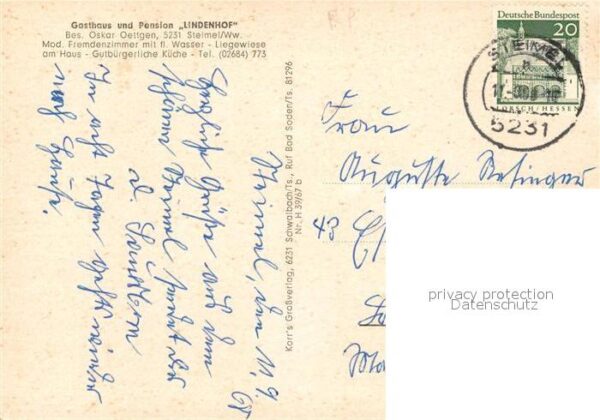 Gasthaus und Pension „LINDENHOF"
Bes. Oskar Oettgen, 5231 Steimel/Ww.
Mod. Fremdenzimmer mit fl. Wasser - Liegewiese
am Haus - Gutbürgerliche Küche - Tel. (02684) 773
Steimel, den 11.9.
Herzliche Grüße aus dem
schönen Steimel sendet
In acht Tagen geht's wieder
nach Hause.
Korr's Großverlag, 6231 Schwalbach/Ts., Ruf Bad Soden/Ts. 81296
Nr. H 39/67 b
Deutsche Bundespost
20
LORSCH/HESSEN
STEIMEL
5231
Frau
Auguste
43
privacy protection
Datenschutz